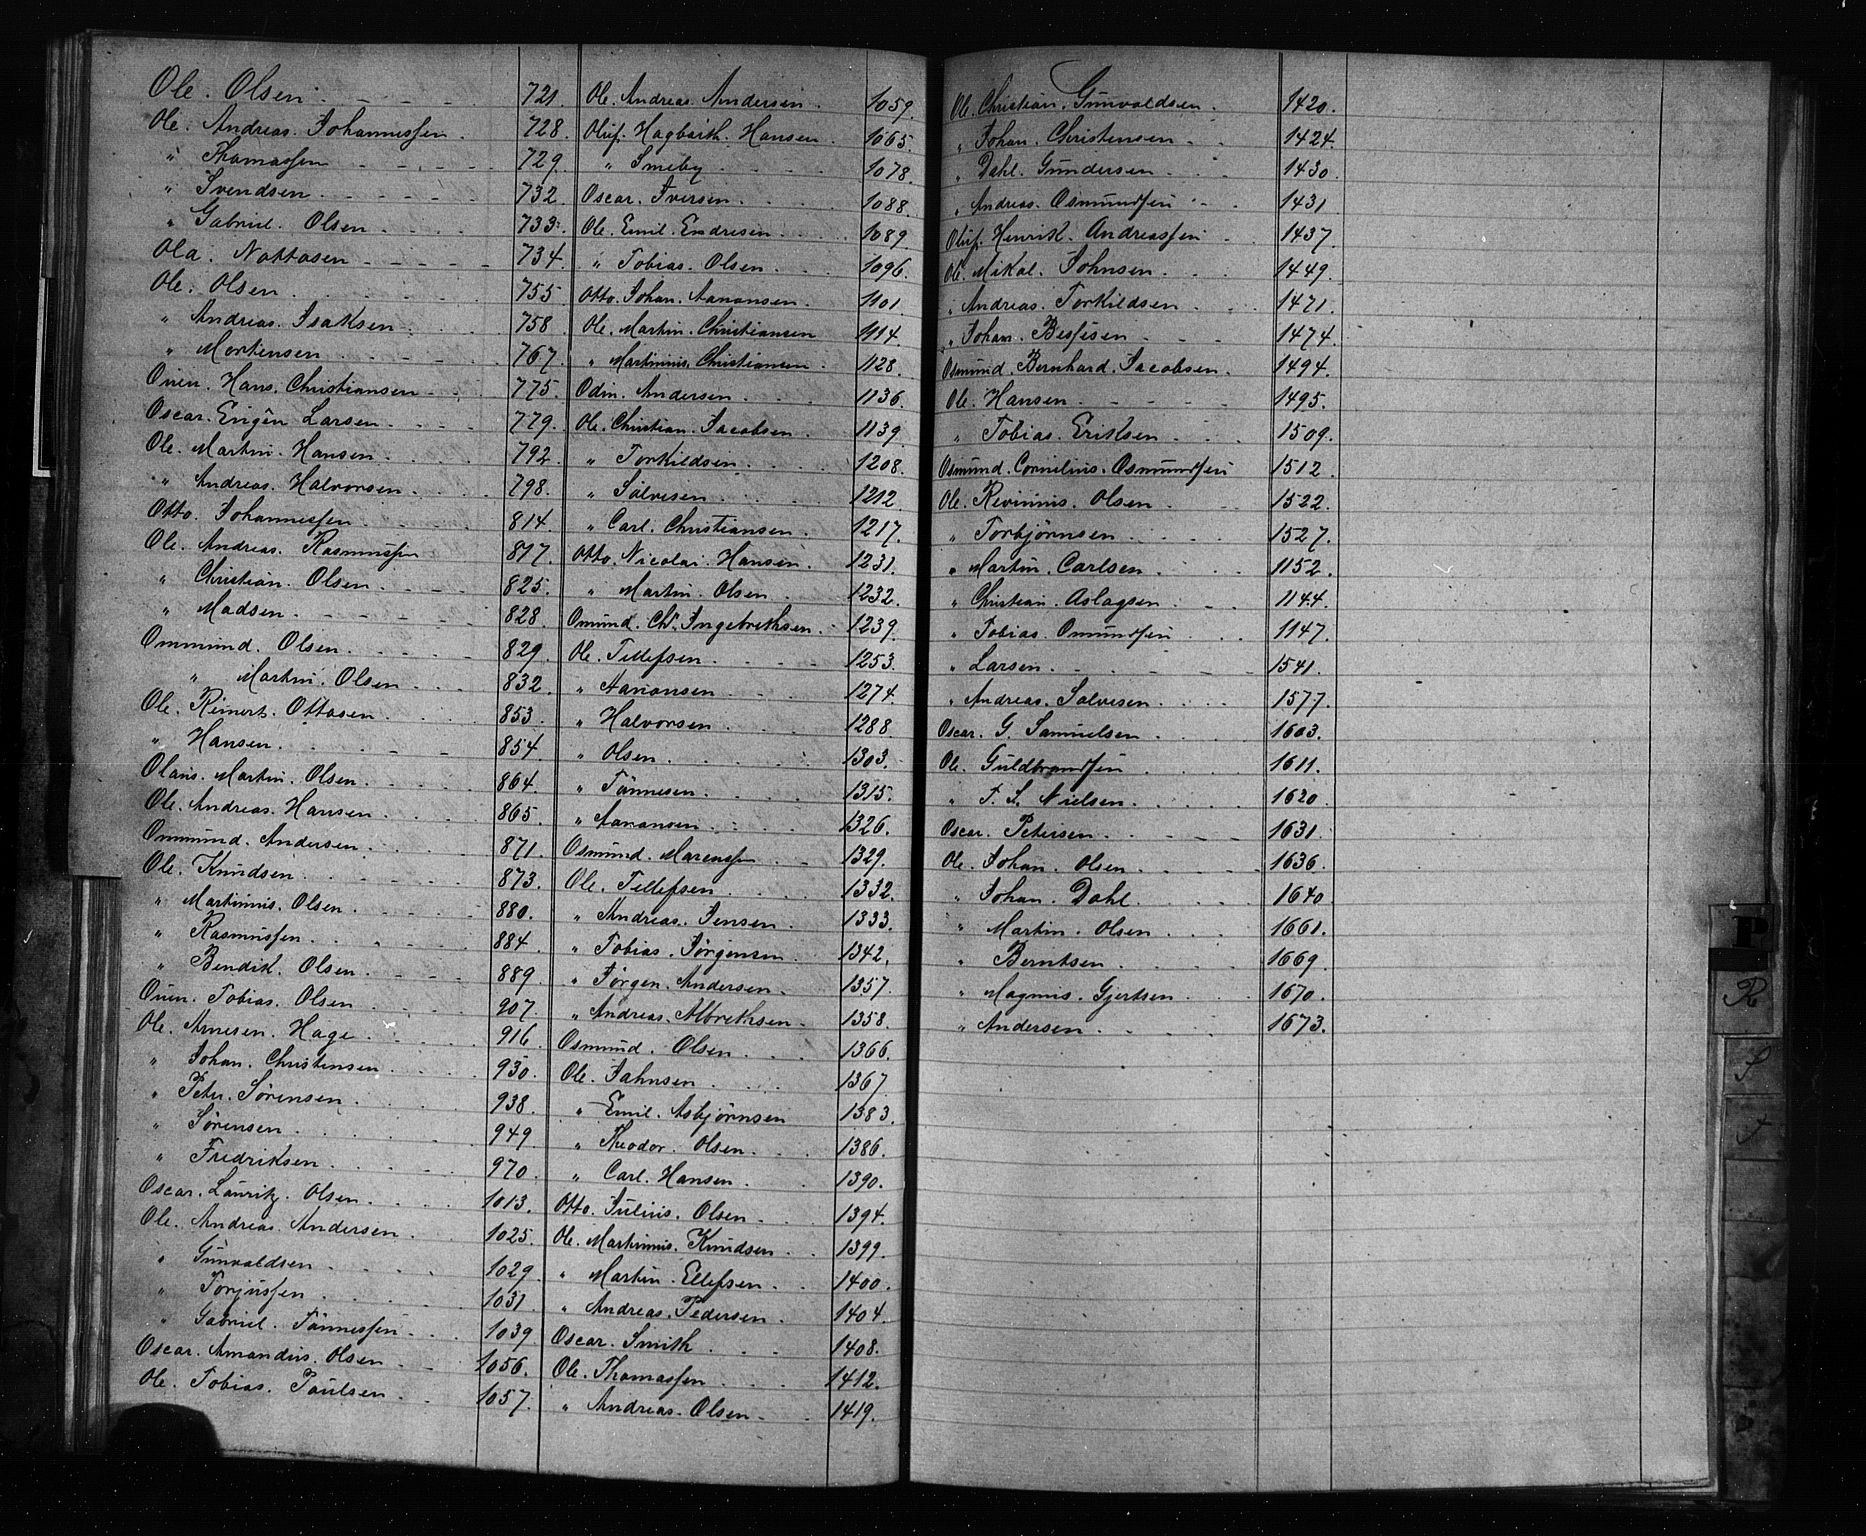 Ole. Olsen 721.
Ole. Andreas. Johannessen. 728.
" Thomassen 729.
" Svendsen 732.
" Gabriel. Olsen 733.
Ola. Nottosen 734.
Ole. Olsen 755.
" Andreas. Isaksen. 758.
" Mortensen 767.
Oven. Hans. Christiansen 775.
Oscar. Engên Larsen 779.
Ole. Martin. Hansen. 792.
" Andreas. Halvorsen. 798.
Otto. Johannessen 814.
Ole. Andreas. Rasmussen 817.
" Christian. Olsen 825.
" Madsen. 828.
Ommund. Olsen. 829.
" Martin. Olsen 832.
Ole. Reinert. Ottosen 853.
" Hansen. 854.
Olaus. Martin. Olsen. 864.
Ole. Andreas. Hansen 865.
Ommund. Andersen. 871.
Ole. Knudsen 873.
" Martinius. Olsen 880.
" Rasmussen 884.
" Bendik. Olsen 889.
Oven. Tobias. Olsen 907.
Ole. Arnesen. Hage. 916.
" Johan. Christensen 930.
" Peter. Sörensen. 938.
" Sörensen 949
" Fredriksen 970.
Oscar. Lauritz. Olsen. 1013.
Ole. Andreas. Andersen. 1025.
" Gunvaldsen 1029.
" Torjussen 1031.
" Gabriel. Tönnessen 1039.
Oscar. Amandus. Olsen 1056.
Ole. Tobias. Paulsen. 1057.
Ole. Andreas. Andersen. 1059.
Oluf. Hagbarth. Hansen 1065.
" Smeby 1078.
Oscar. Iversen. 1088.
Ole. Emil. Endresen 1089.
" Tobias. Olsen. 1096.
Otto. Johan. Aanonsen 1101.
Ole. Martin. Christiansen 1114.
" Martinius. Christiansen 1128.
Odin. Andersen 1136.
Ole. Christian. Jacobsen. 1139
" Torkildsen 1208.
" Sølvesen 1212.
" Carl. Christiansen. 1217.
Otto. Nicolai. Hansen. 1231.
" Martin. Olsen 1232.
Omund. Chr. Ingebrethsen. 1239.
Ole. Tellefsen 1253.
" Aanonsen 1274.
" Halvorsen 1288.
" Olsen 1303.
" Tönnesen. 1315.
" Aanonsen 1326.
Osmund. 1329.
Ole. Tellefsen 1332.
" Andreas. Jensen 1333.
" Tobias. Jörgensen 1342.
" Jörgen. Andersen. 1357.
" Andreas. Albrethsen 1358.
Osmund. Olsen 1366.
Ole. Jahnsen 1367.
" Emil. Asbjörnsen 1383.
" Theodor. Olsen. 1386.
" Carl. Hansen. 1390.
Otto. Julius. Olsen 1394.
Ole. Martinius. Knudsen 1399.
" Martin. Ellefsen 1400.
" Andreas. Pedersen 1404.
Oscar. Smith 1408.
Ole. Thomassen 1412.
" Andreas. Olsen. 1419.
Ole. Christian. Gunvaldsen. 1420.
" Johan. Christensen 1424.
" Dahl. Gundersen 1430.
" Andreas. Osmundsen 1431.
Oluf. Henrik. Andreassen 1437.
Ole. Mikal. Johnsen 1449.
" Andreas. Torkildsen 1471.
" Johan. 1474.
Osmund. Bernhard. Jacobsen. 1494.
Ole. Hansen 1495.
" Tobias. Eriksen 1509.
Osmund. Cornelius. Osmundsen 1512.
Ole. Olsen 1522.
" Torbjörnsen 1527.
" Martin. Carlsen 1152.
" Christian. Aslagsen 1144.
" Tobias. Omundsen 1147.
" Larsen 1541.
" Andreas. Salvesen 1577.
Oscar. G. Samuelsen 1603.
Ole. Guldbrandsen 1611.
" T. S. Nielsen. 1620.
Oscar. Petersen 1631.
Ole. Johan. Olsen 1636.
" Johan. Dahl. 1640.
" Martin. Olsen 1661.
" Berntsen 1669.
" Magnus. Gjertsen 1670.
" Andersen 1673.
P
R
S